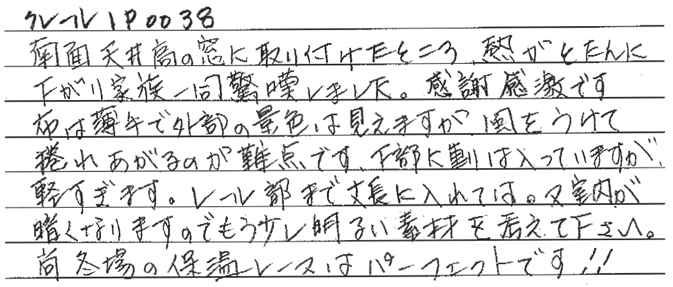 クレール1P0038
南面天井高の窓に取り付けたところ、熱がとたんに
下がり家族一同驚嘆しました。感謝感激です
布は薄手で外部の景色は見えますが風をうけて
捲れあがるのが難点です、下部に重りは入っていますが、
軽すぎます。レール部まで丈長に入れては。又室内が
暗くなりますのでもう少し明るい素材を考えて下さい。
尚冬場の保温レースはパーフェクトです!!